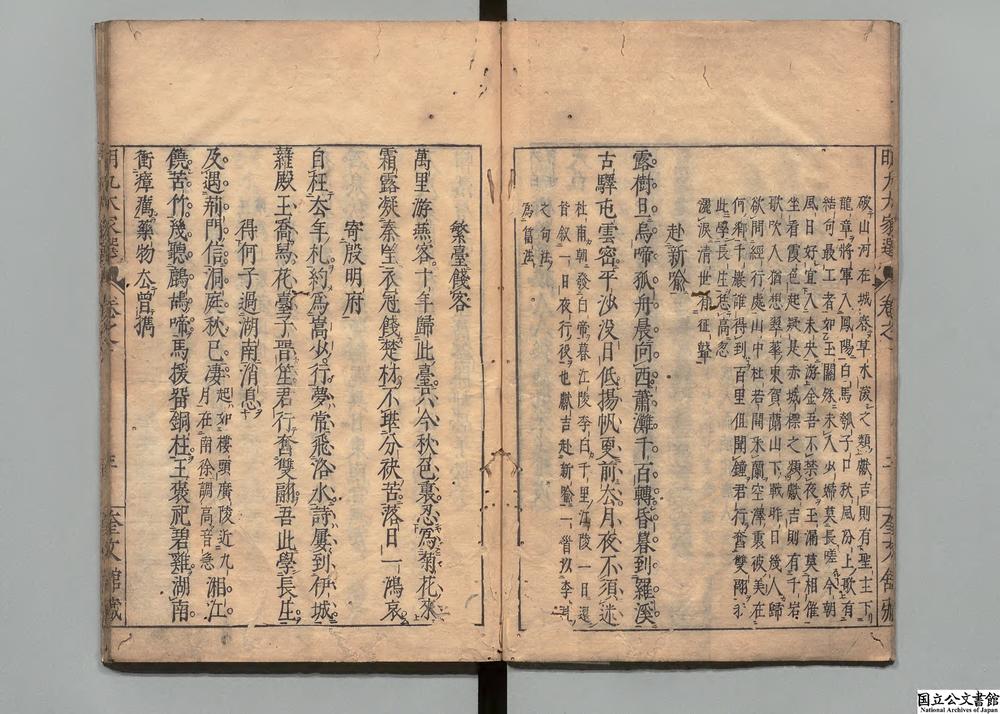 破山河在城春草木深之類獻吉則有聖主下
龍章將軍入鳳陽白馬瓠子口秋風汾上歌有
結句最工者如玉關殊未入少婦莫長嗟今朝
風日好宜入未央游金吾不禁夜玉漏莫相催
坐看霞色起疑是赤城標之類獻吉則有千岩
欲吹入猶想翠華東賀蘭山下戰昨日幾人歸
欲問經行處山中杜若間采蘭空澤裏彼美在
何鄉千巖誰得到百里但聞鐘君行奮雙翮
此學長生悲高忽
灑淚清世有征鼙
赴新喻
露樹旦烏啼孤舟晨向西蕭灘千百轉昏暮到羅溪
古驛屯雲密平沙没日低揚帆更前去月夜不須迷
杜南朝發白帝暮江陵李白千里江陵一日還
皆叙一日夜行役也獻吉赴新喻一首以李
之句法
為篇法
繁臺餞客
萬里游燕客十年歸此臺只今秋色裏忍為菊花來
霜露凝秦坐衣冠餞楚材不堪分袂苦落日一鴻哀
寄殷明府
自枉去年札約為嵩少行夢常飛洛水詩屢到伊城
雜殿王喬鳥花臺子晋笙君行奮雙翮吾此學長生
得何子過湖南消息
及遇荊門信洞庭秋已淒
起如樓頭廣陵近九
月在南徐調高音急
湘江
饒苦竹幾聽鷓鴣啼馬援留銅柱王褒祀碧雞湖南
衝瘴癘藥物去曾攜
明九大家選
卷之一
奎文館藏
国立公文書館
National Archives of Japan